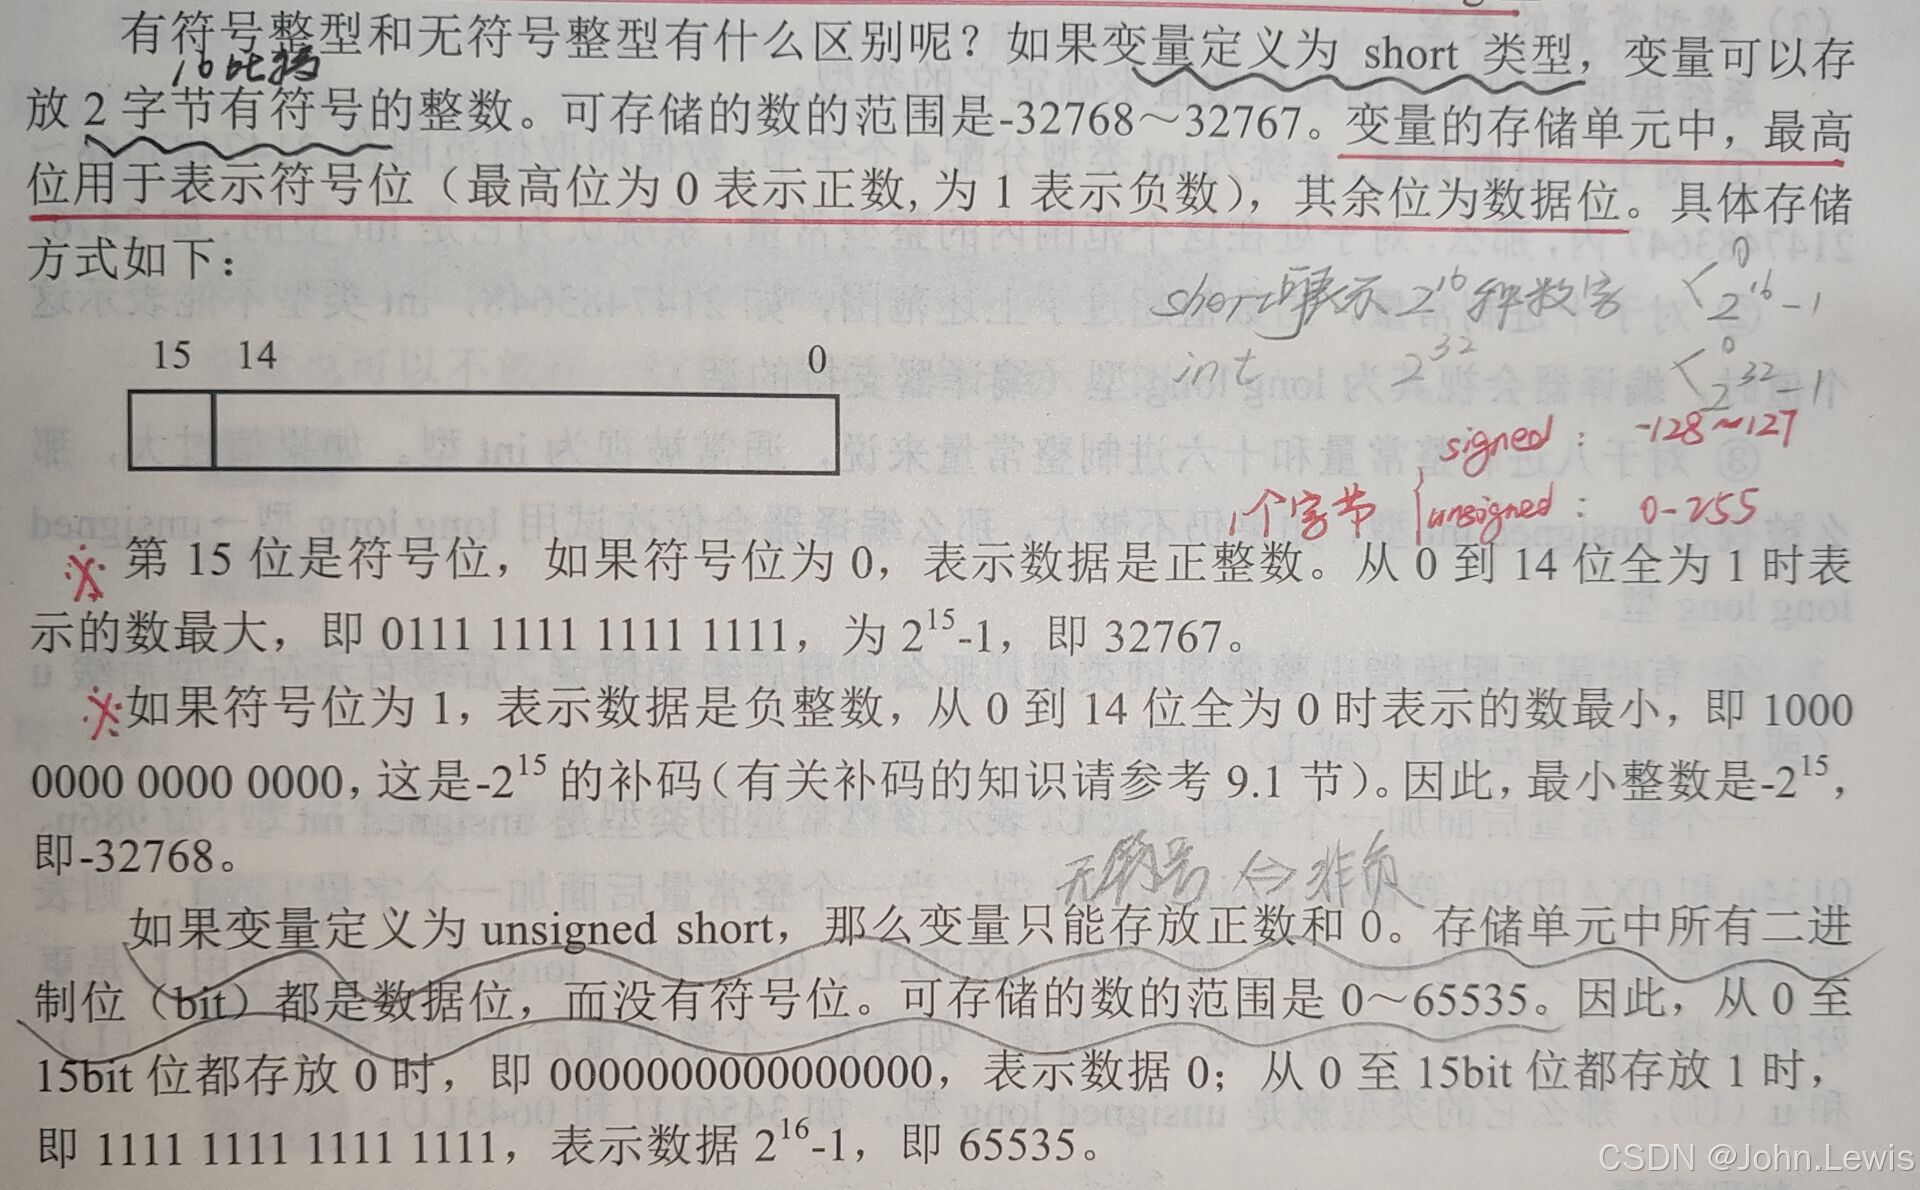 有符号整型和无符号整型有什么区别呢？如果变量定义为 short 类型，变量可以存
16比特
放 2 字节有符号的整数。可存储的数的范围是-32768～32767。变量的存储单元中，最高
位用于表示符号位（最高位为 0 表示正数, 为 1 表示负数），其余位为数据位。具体存储
方式如下：
short 表示 2^16 种数字 < 0
2^16-1
int 2^32 < 0
2^32-1
15 14 0
signed： -128~127
1个字节 { unsigned： 0-255
第 15 位是符号位，如果符号位为 0，表示数据是正整数。从 0 到 14 位全为 1 时表
示的数最大，即 0111 1111 1111 1111，为 2^15-1，即 32767。
如果符号位为 1，表示数据是负整数，从 0 到 14 位全为 0 时表示的数最小，即 1000
0000 0000 0000，这是-2^15 的补码（有关补码的知识请参考 9.1 节）。因此，最小整数是-2^15，
即-32768。
无符号 <=> 非负
如果变量定义为 unsigned short，那么变量只能存放正数和 0。存储单元中所有二进
制位（bit）都是数据位，而没有符号位。可存储的数的范围是 0～65535。因此，从 0 至
15bit 位都存放 0 时，即 0000000000000000，表示数据 0；从 0 至 15bit 位都存放 1 时，
即 1111 1111 1111 1111，表示数据 2^16-1，即 65535。
CSDN @John.Lewis